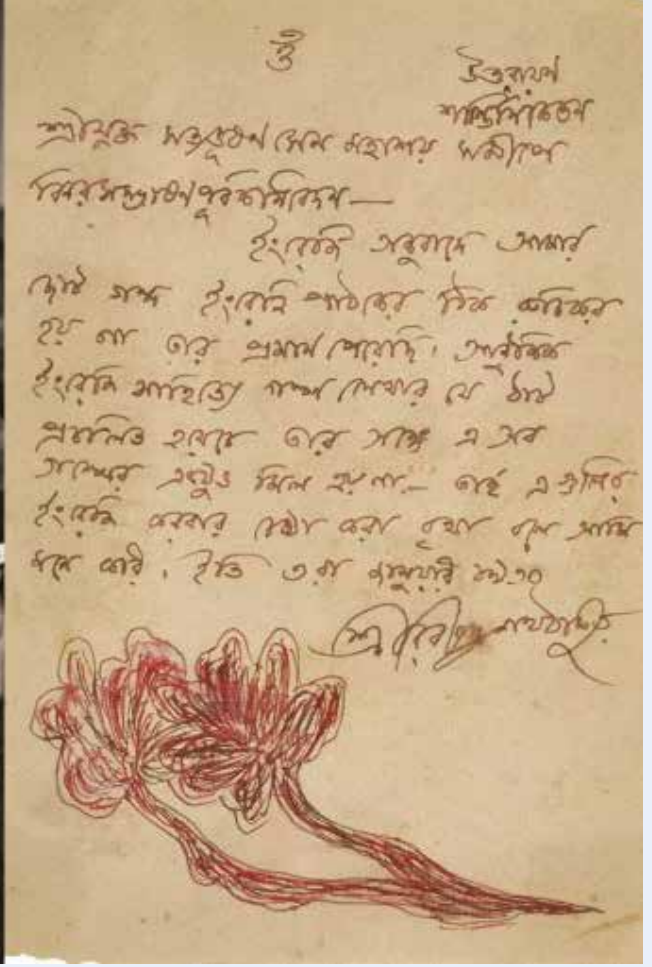 ওঁ
উত্তরায়ণ
শান্তিনিকেতন
শ্রীযুক্ত সত্যভূষণ সেন মহাশয় সমীপে
বিনয়সম্ভাষণপূর্বক নিবেদন—
ইংরেজি অনুবাদে আমার
ছোট গল্প ইংরেজি পাঠকের ঠিক রুচিকর
হয় না তার প্রমাণ পেয়েছি। আধুনিক
ইংরেজি সাহিত্যে গল্প লেখার যে ঠাট
প্রচলিত হয়েছে তার সঙ্গে এ সব
গল্পের একটুও মিল হয় না— তাই এগুলির
ইংরেজি করবার চেষ্টা করা বৃথা বলে আমি
মনে করি। ইতি ৩রা জানুয়ারি ১৯৩০
শ্রীরবীন্দ্রনাথ ঠাকুর